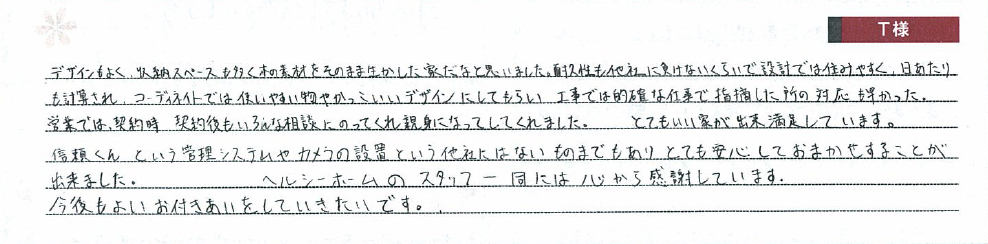 T様
デザインもよく、収納スペースも多く木の素材をそのまま生かした家だなと思いました。耐久性も他社に負けないくらいで設計では住みやすく、日あたり
も計算され、コーディネイトでは使いやすい物やかっこいいデザインにしてもらい、工事では的確な仕事で指摘した所の対応も早かった。
営業では、契約時、契約後もいろんな相談にのってくれ親身になってしてくれました。 とてもいい家が出来満足しています。
信頼くんという管理システムやカメラの設置という他社にはないものまでもありとても安心しておまかせすることが
出来ました。 ヘルシーホームのスタッフ一同には心から感謝しています。
今後もよいお付きあいをしていきたいです。